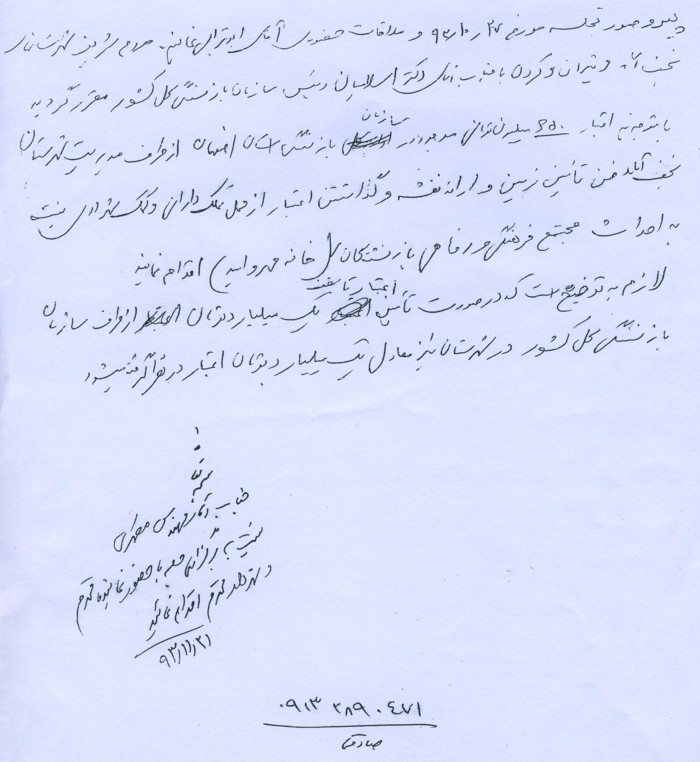 پیرو صورتجلسه مورخ ۹۳/۱۰/۲۷ و ملاقات حضوری آقای ابوترابی نماینده مردم شریف شهرستانهای
نجف آباد و تیران و کرون با جناب آقای دکتر اسلامیان رئیس سازمان بازنشستگی کل کشور مقرر گردید
با توجه به اعتبار ۶۵۰ میلیون تومانی موجود در سازمان بازنشستگی استان اصفهان از طرف مدیریت شهرستان
نجف آباد ضمن تأمین زمین و ارائه نقشه و گذاشتن اعتبار از محل تملک دارائی و کمک شهرداری نسبت
به احداث مجتمع فرهنگی و رفاهی بازنشستگان (خانه مهر و امید) اقدام نمایند
لازم به توضیح است که در صورت تأمین اعتبار تا سقف یک میلیارد تومان از طرف سازمان
بازنشستگی کل کشور در شهرستان نیز معادل یک میلیارد تومان اعتبار در نظر گرفته میشود
بسمه تعالی
جناب آقای مهندس
نسبت به برگزاری جلسه با حضور نماینده محترم
و شهردار محترم اقدام نمائید
۹۳/۱۱/۲۱
۰۹۱۳ ۲۸۹ ۰۴۷۱
صادقی